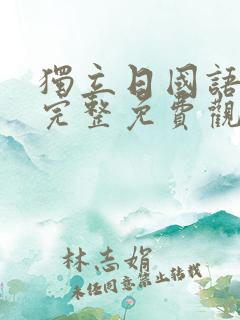 獨立日國語
完整免費觀
林志娟
未經同意禁止轉載